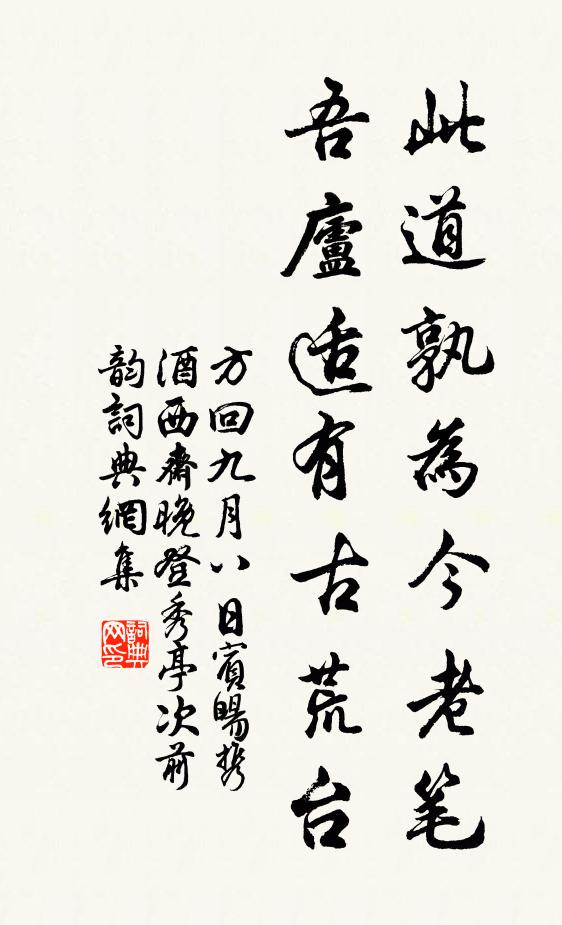 此道孰為今老笔
吾廬适有古荒台
方回九月八日賓暘携
酒西齋晚登秀亭次前
韵詞典網集
詞典
网印